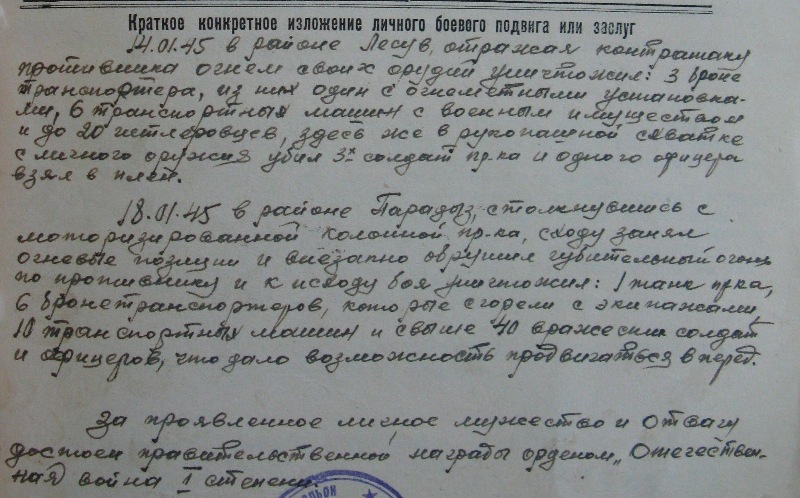 Краткое конкретное изложение личного боевого подвига или заслуг
14.01.45 в районе Лесув, отражая контратаку
противника огнем своих орудий уничтожил: 3 броне
транспортера, из них один с огнеметными установка-
ми, 6 транспортных машин с военным имуществом
и до 20 гитлеровцев, здесь же в рукопашной схватке
с личного оружия убил 3х солдат пр-ка и одного офицера
взял в плен.
18.01.45 в районе Парадыз, столкнувшись с
моторизированной колонной пр-ка, сходу занял
огневые позиции и внезапно обрушил губительный огонь
по противнику и к исходу боя уничтожил: 1 танк пр-ка,
6 бронетранспортеров, которые сгодели с экипажами,
10 транспортных машин и свыше 40 вражеских солдат
и офицеров, что дало возможность продвигаться вперед.
За проявленное личное мужество и отвагу
достоен правительственной награды орденом „Отечествен-
ная война I степени.